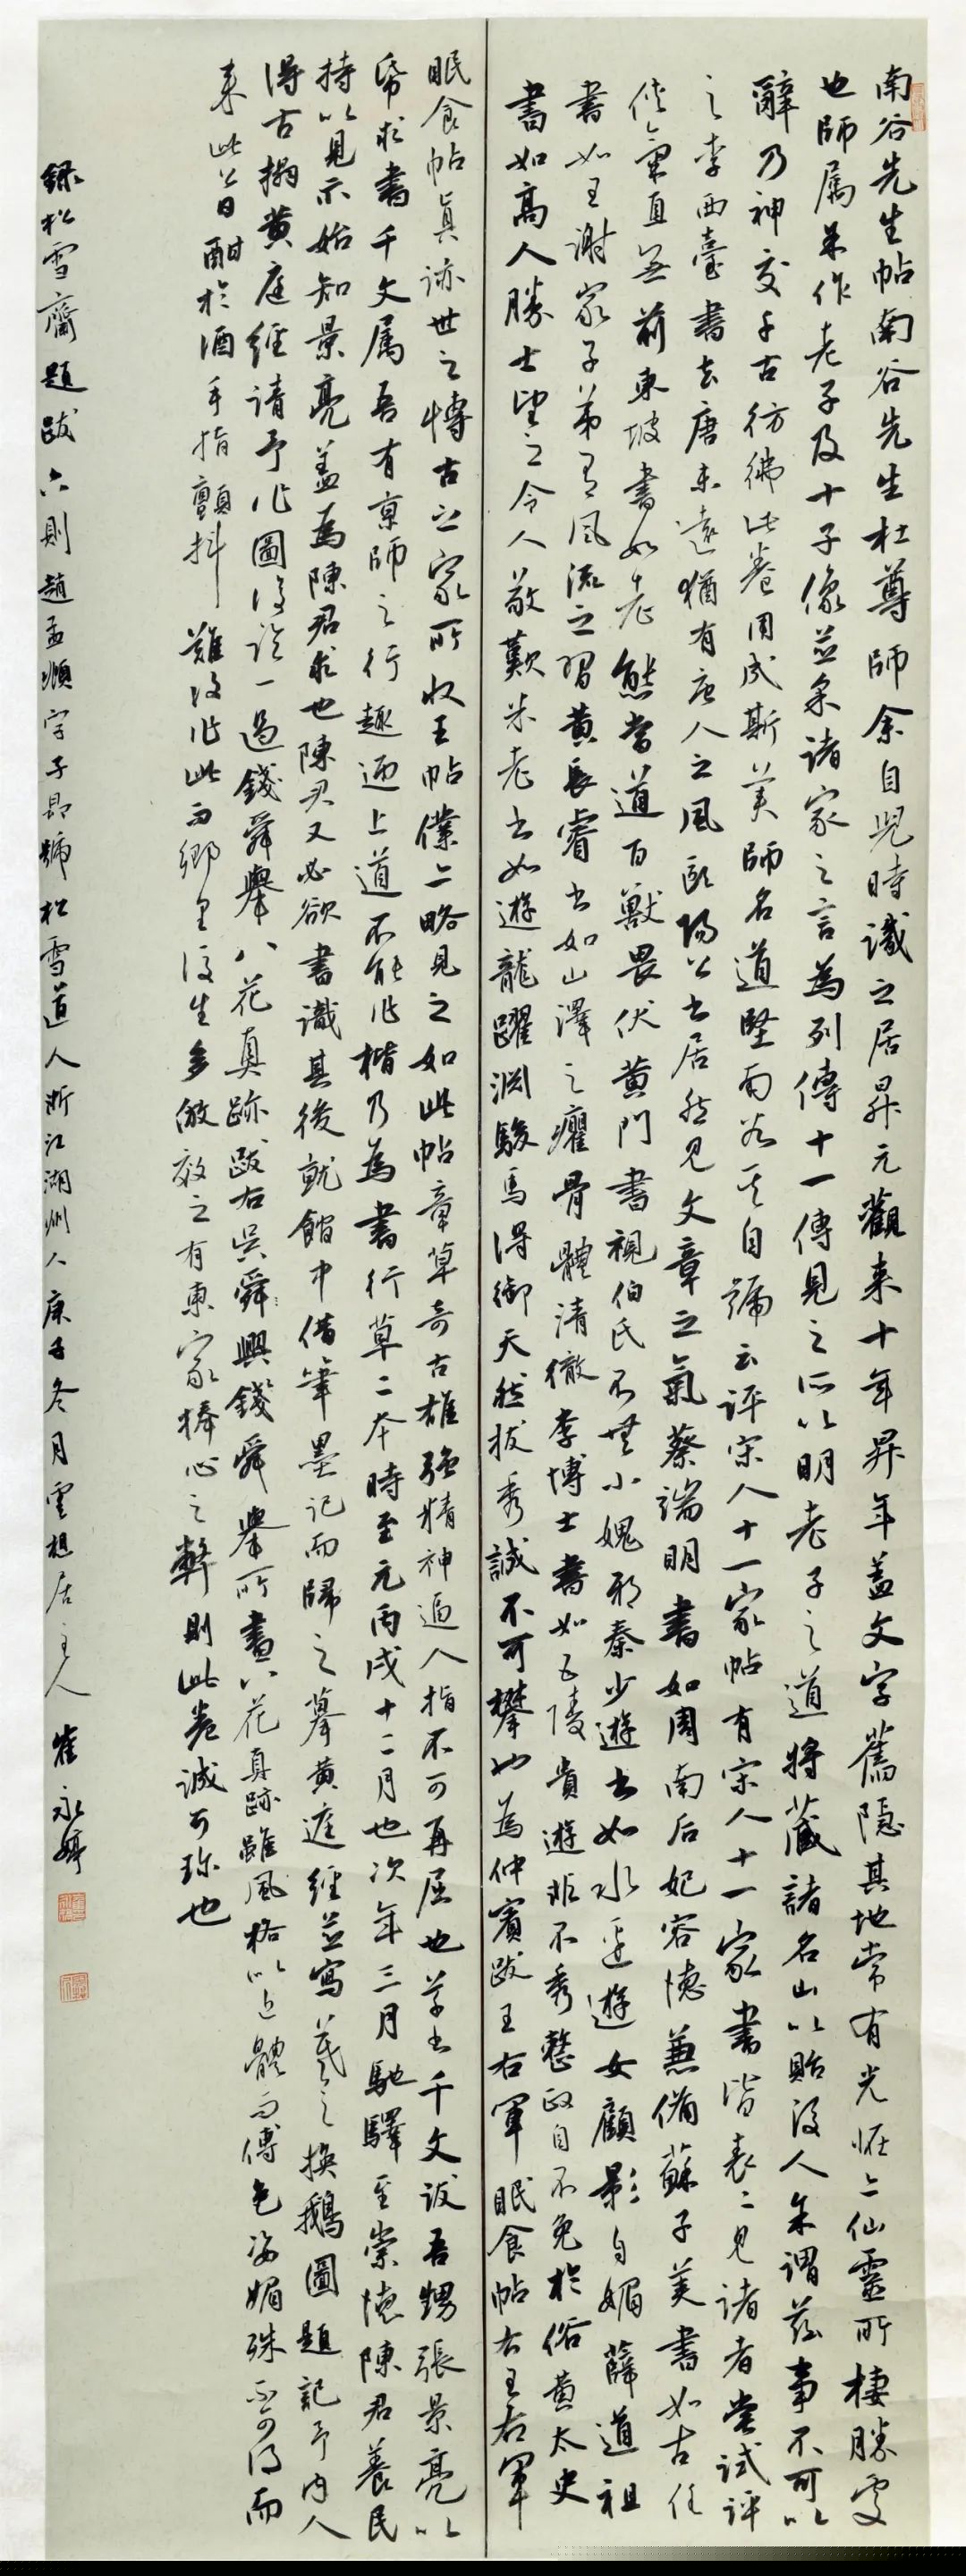 南谷先生帖南谷先生杜尊師余自兒時識之居昇元觀来十年昇年蓋文字舊隱其地常有光怪二仙靈所棲勝處
也師属余作老子及十子像並采諸家之言為列傳十一傳見之所以明老子之道將藏諸名山以貽後人余謂茲事不可以
辭乃神交千古彷彿此卷用成斯美師名道堅南谷其自號云評宋人十一家帖有宋人十一家書皆表二見諸者嘗試評
之李西臺書去唐未遠猶有唐人之風歐陽公書居然見文章之氣蔡端明書如周南后妃容德兼備蘇子美書如古任
俠氣直無前東坡書如老熊當道百獸畏伏黄門書視伯氏不無小媿邪秦少遊書如水邊遊女顧影自媚薛道祖
書如王謝家子弟有風流之習黄長睿書如山澤之癯骨體清徹李博士書如五陵貴遊非不秀整政自不免於俗黄太史
書如高人勝士望之令人敬歎米老書如遊龍躍淵駿馬得御天然拔秀誠不可攀也為仲賓跋王右軍眠食帖右王右軍
眠食帖真迹世之博古之家所收王帖僕亦略見之如此帖章草奇古雄强精神過人指不可再屈也草書千文跋吾甥張景亮以
帋求書千文属吾有京師之行趣迺上道不能作楷乃為書行草二本時至元丙戌十二月也次年三月馳驛至崇德陳君養民
持以見示始知景亮蓋為陳君求也陳君又必欲書識其後就館中借筆墨記而歸之摹黄庭經並寫羲之換鵝圖題記予内人
得古搨黄庭經請予作圖後臨一過錢舜舉八花真跡跋右吳舜興錢舜舉所畫八花真跡雖風格以近體而傅色姿媚殊不可得而
来此公日酣於酒手指顫抖難復作此而鄉里後生多倣效之有東家捧心之弊則此卷誠可珍也
録松雪齋題跋六則趙孟頫字子昂號松雪道人浙江湖州人庚子冬月雲想居主人崔永婷